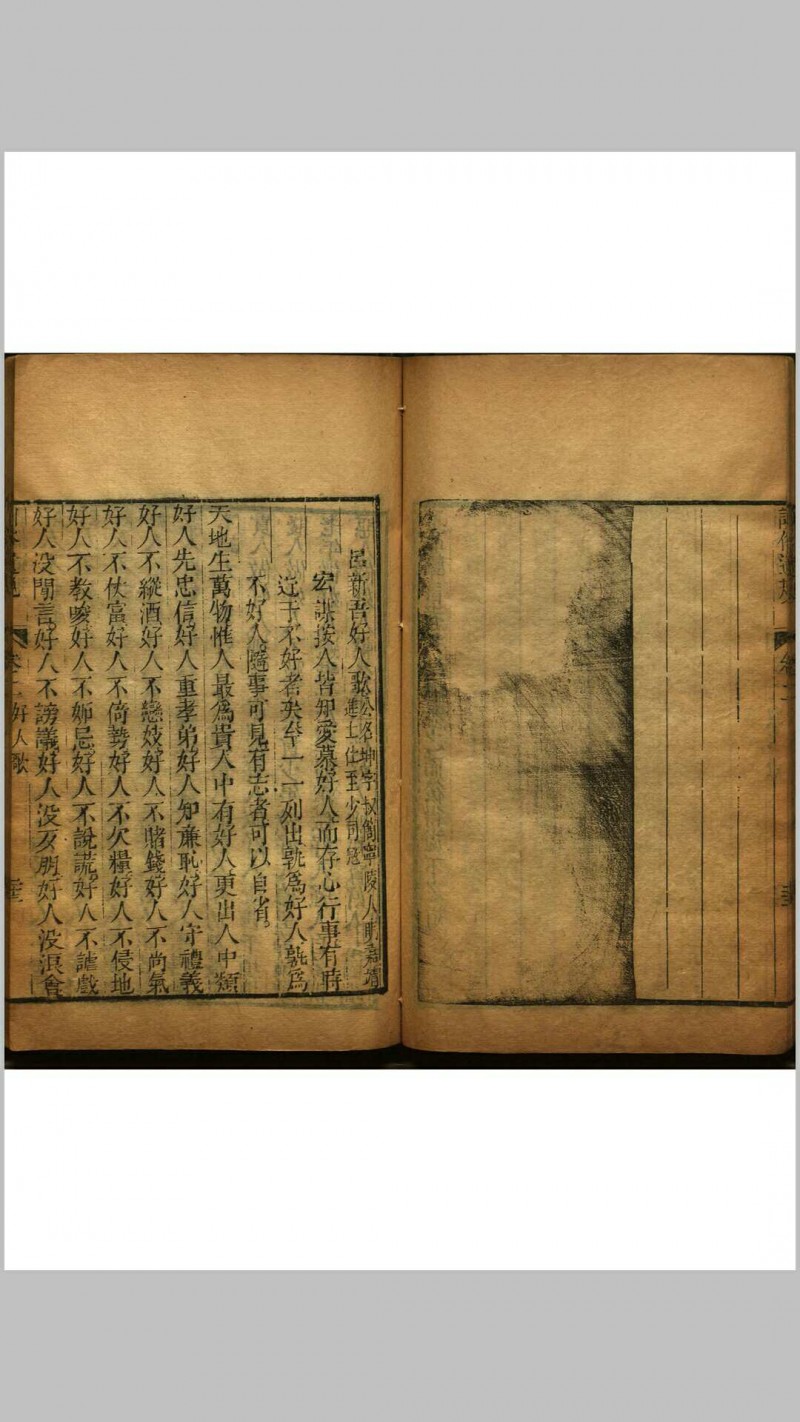 呂新吾好人歌
公名坤字叔簡寧陵人明嘉靖
進士仕至少司寇
宏謀按人皆知愛慕好人而存心行事有時
近于不好者矣
一一列出孰為好人孰為
不好人隨事可見有志者可以自省。
天地生萬物惟人最為貴人中有好人更出人中類
好人先忠信好人重孝弟好人知廉恥好人守禮義
好人不縱酒好人不戀妓好人不賭錢好人不尚氣
好人不仗富好人不倚勢好人不欠糧好人不侵地
好人不教唆好人不妬忌好人不說謊好人不謔戲
好人没閒言好人不謗議好人没歹朋好人没浪會
卷二好人歌